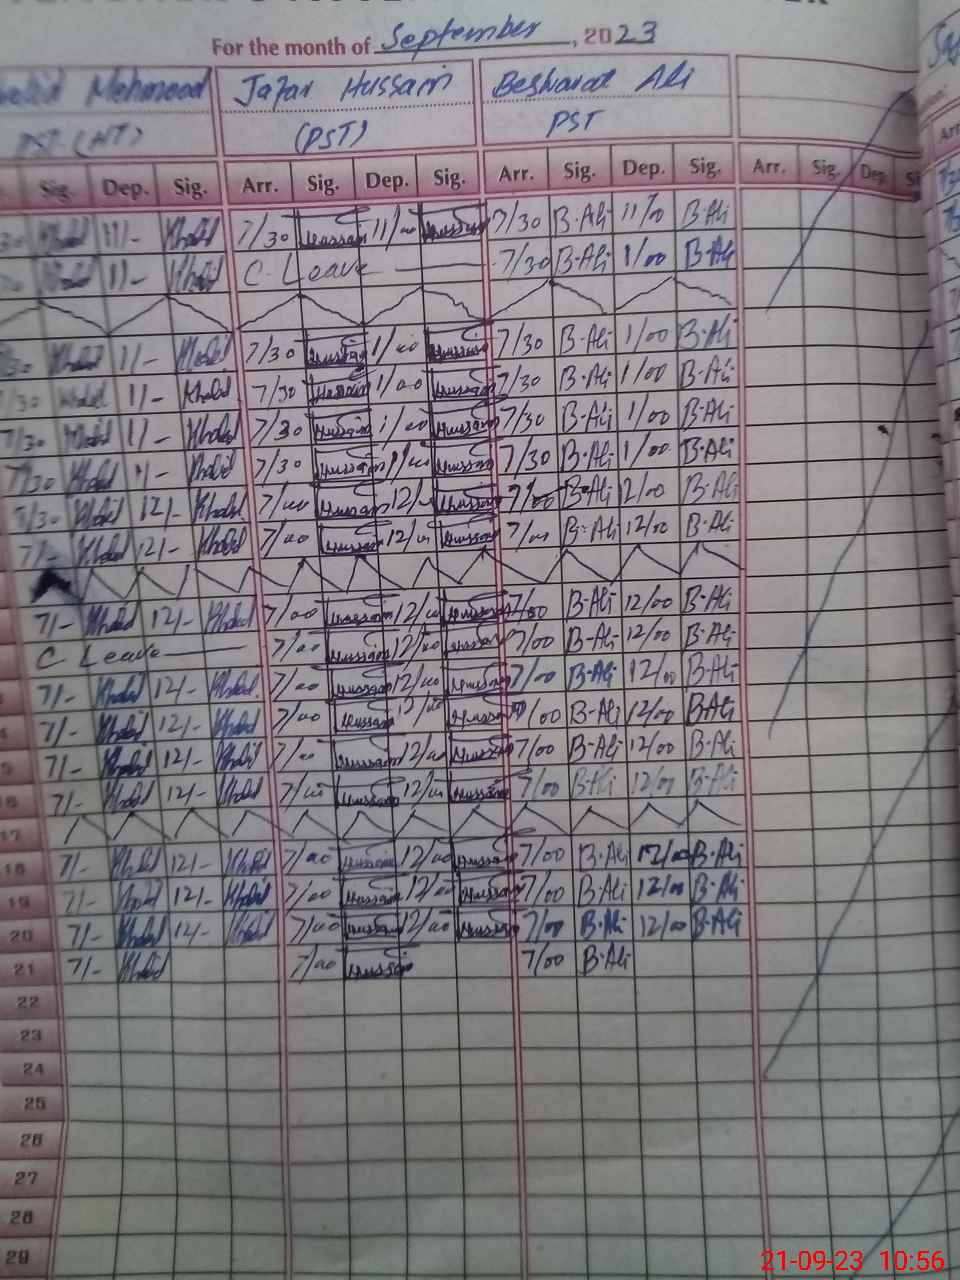 For the month of September, 2023
Mehmood Jafar Hussain Besharat Ali
PST (HT) (PST) PST
Sig. Dep. Sig. Arr. Sig. Dep. Sig. Arr. Sig. Dep. Sig. Arr. Sig. Dep.
30 Khalid 11/- Khalid 7/30 Hussain 11/00 Hussain 7/30 B.Ali 11/00 B.Ali
Khalid 1/- Khalid C. Leave 7/30 B.Ali 1/00 B.Ali
30 Khalid 1/- Khalid 7/30 Hussain 1/00 Hussain 7/30 B.Ali 1/00 B.Ali
7/30 Khalid 1/- Khalid 7/30 Hussain 1/00 Hussain 7/30 B.Ali 1/00 B.Ali
7/30 Khalid 1/- Khalid 7/30 Hussain 1/00 Hussain 7/30 B.Ali 1/00 B.Ali
7/30 Khalid 1/- Khalid 7/30 Hussain 1/00 Hussain 7/30 B.Ali 1/00 B.Ali
7/30 Khalid 12/- Khalid 7/00 Hussain 12/- Hussain 7/00 B.Ali 12/00 B.Ali
7/- Khalid 12/- Khalid 7/00 Hussain 12/00 Hussain 7/00 B.Ali 12/00 B.Ali
7/- Khalid 12/- Khalid 7/00 Hussain 12/00 Hussain 7/00 B.Ali 12/00 B.Ali
C Leave 7/00 Hussain 12/00 Hussain 7/00 B.Ali 12/00 B.Ali
7/- Khalid 12/- Khalid 7/00 Hussain 12/00 Hussain 7/00 B.Ali 12/00 B.Ali
7/- Khalid 12/- Khalid 7/00 Hussain 12/00 Hussain 7/00 B.Ali 12/00 B.Ali
7/- Khalid 12/- Khalid 7/00 Hussain 12/00 Hussain 7/00 B.Ali 12/00 B.Ali
16 7/- Khalid 12/- Khalid 7/00 Hussain 12/00 Hussain 7/00 B.Ali 12/00 B.Ali
17
18 7/- Khalid 12/- Khalid 7/00 Hussain 12/00 Hussain 7/00 B.Ali 12/00 B.Ali
19 7/- Khalid 12/- Khalid 7/00 Hussain 12/00 Hussain 7/00 B.Ali 12/00 B.Ali
20 7/- Khalid 12/- Khalid 7/00 Hussain 12/00 Hussain 7/00 B.Ali 12/00 B.Ali
21 7/- Khalid 7/00 Hussain 7/00 B.Ali
22
23
24
25
26
27
28
29
21-09-23 10:56